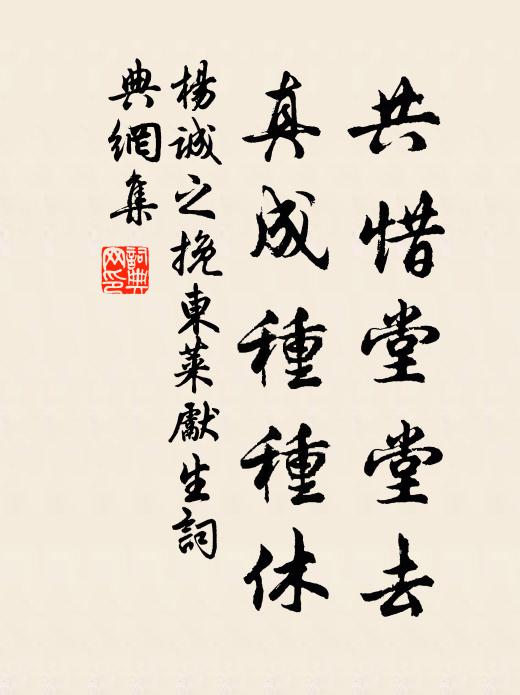 共惜堂堂去
真成種種休
楊誠之挽東萊獻生詞
典網集
詞典網印